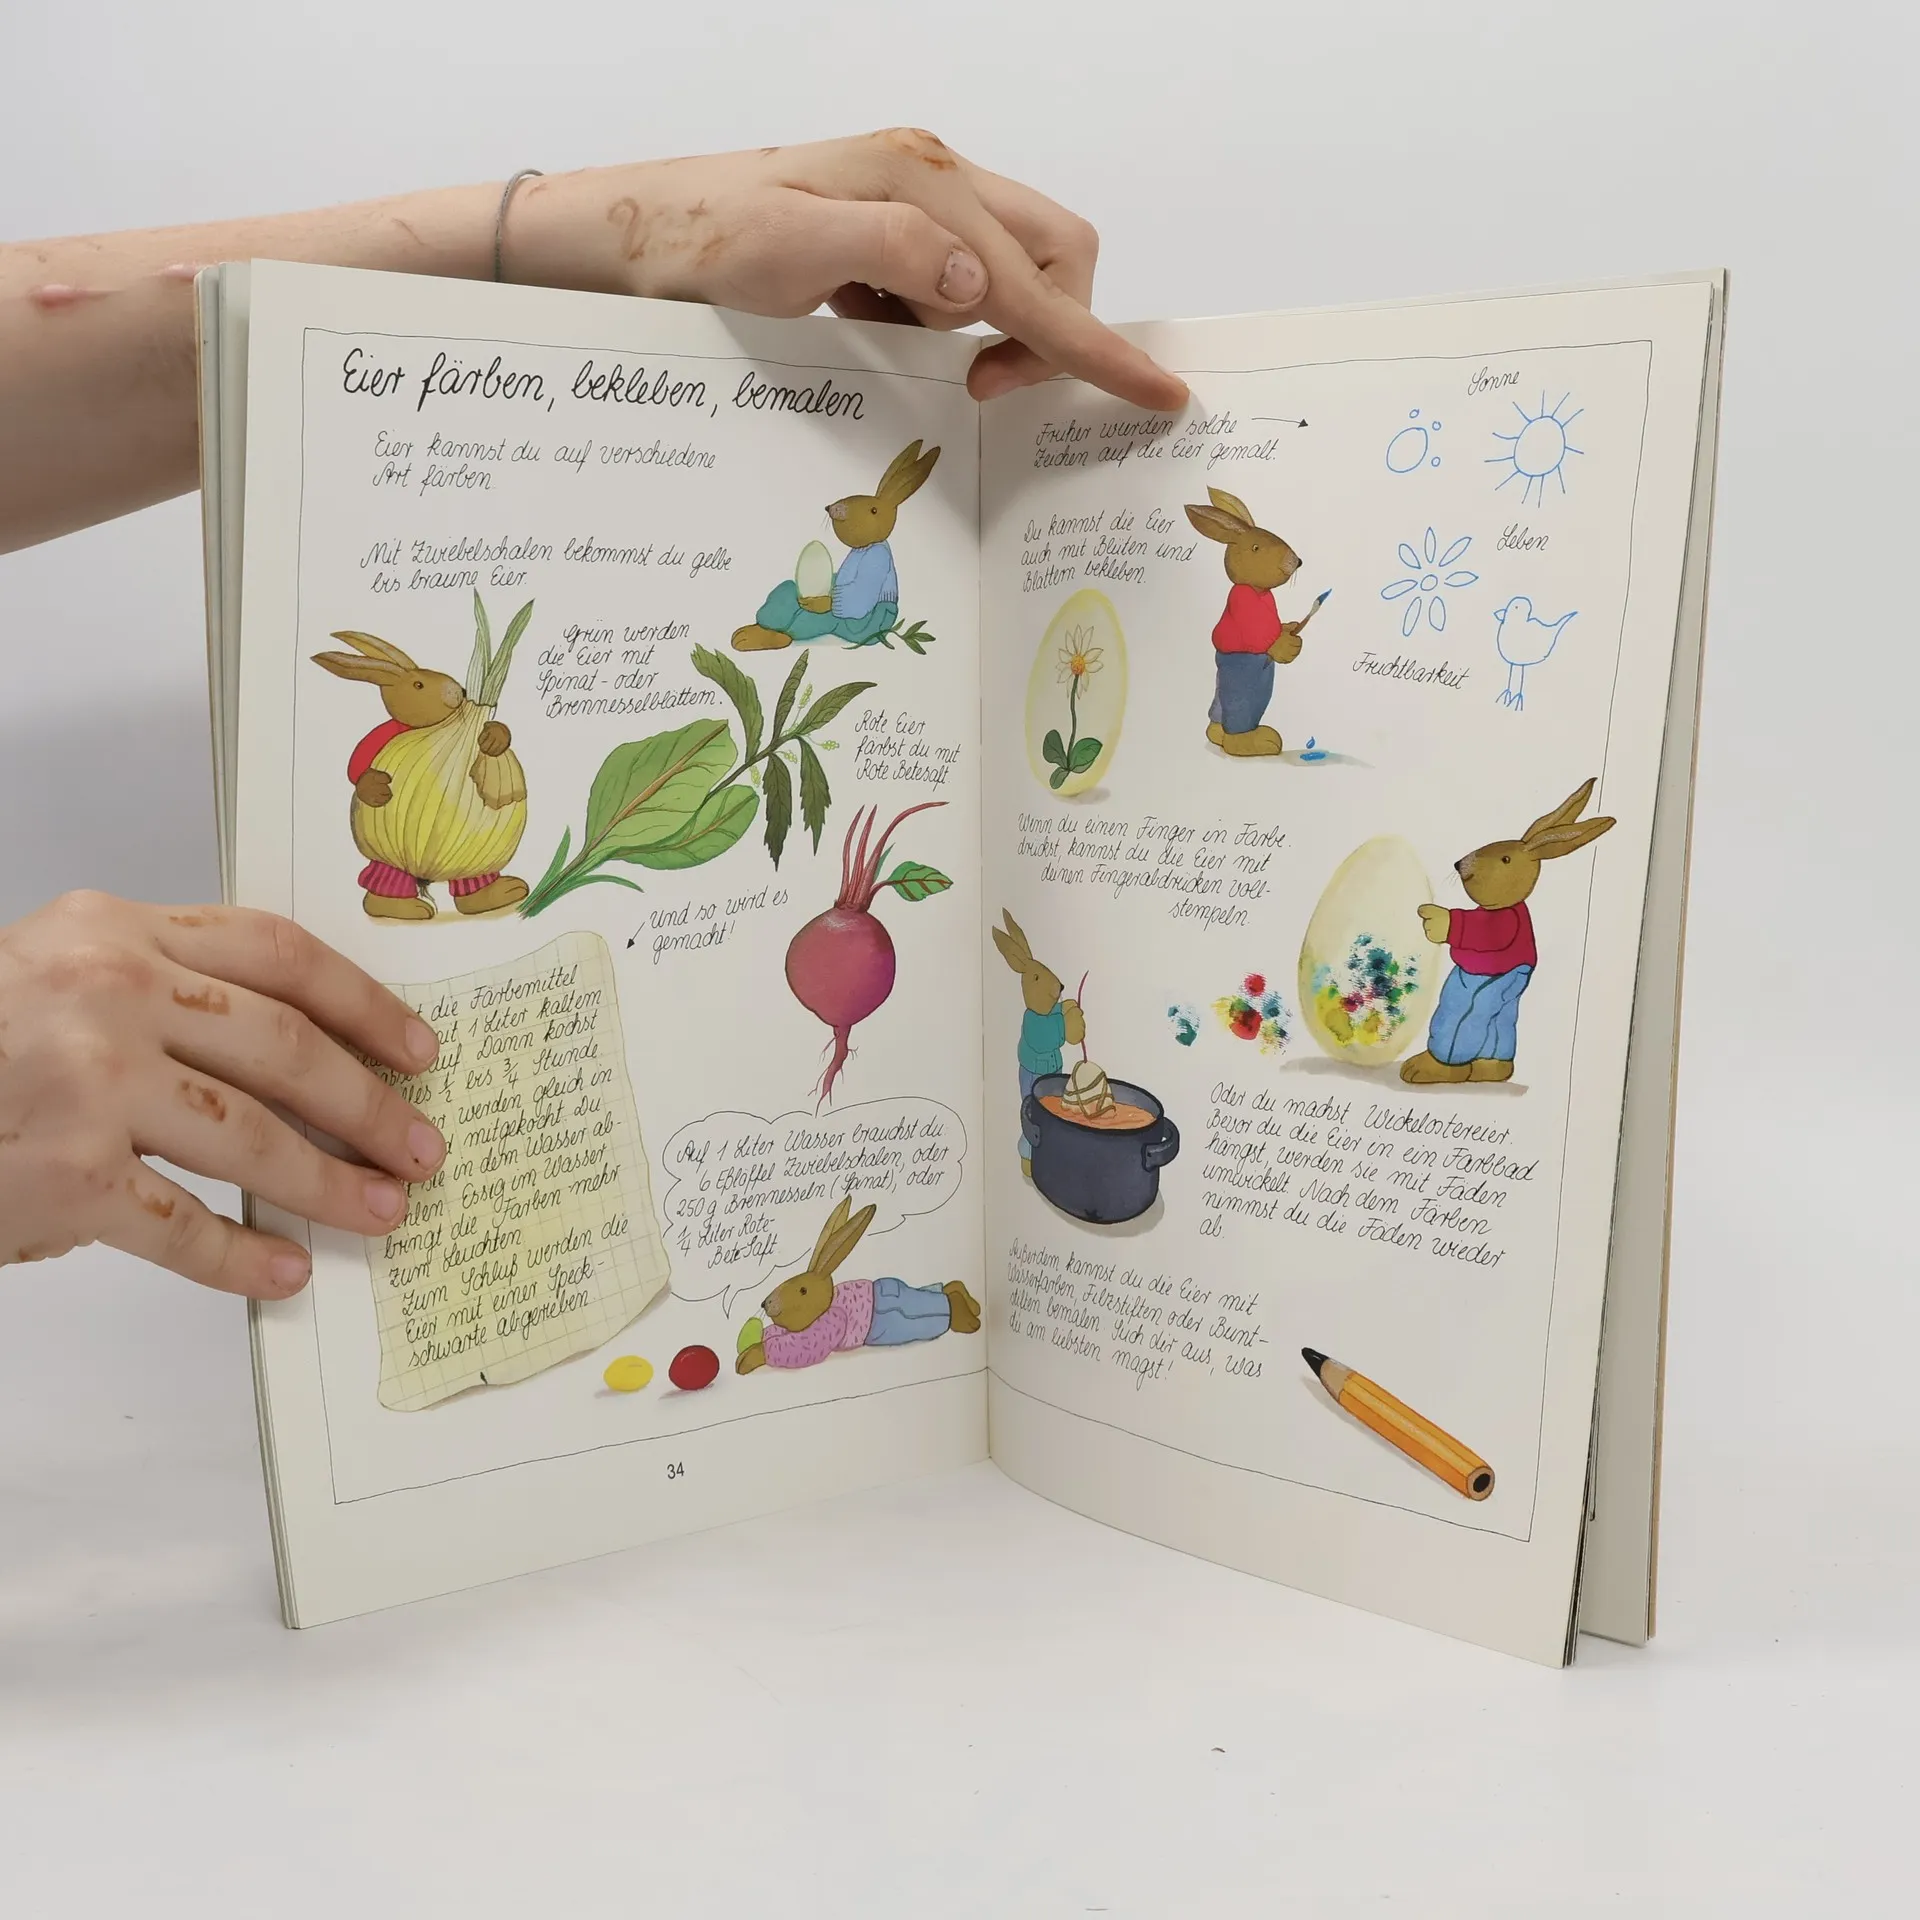 Eier färben, bekleben, bemalen
Eier kannst du auf verschiedene
Art färben.
Mit Zwiebelschalen bekommst du gelbe
bis braune Eier.
Grün werden
die Eier mit
Spinat- oder
Brennesselblättern.
Rote Eier
färbst du mit
Rote Betesaft
Und so wird es
gemacht!
die Färbemittel
mit 1 Liter kaltem
auf. Dann kochst
alles ½ bis ¾ Stunde
werden gleich in
mitgekocht. Du
sie in dem Wasser ab-
Essig im Wasser
bringt die Farben mehr
zum Leuchten.
Zum Schluß werden die
Eier mit einer Speck-
schwarte abgerieben
Auf 1 Liter Wasser brauchst du
6 Eßlöffel Zwiebelschalen, oder
250 g Brennesseln (Spinat), oder
¼ Liter Rote-
Bete-Saft
34
Früher wurden solche
Zeichen auf die Eier gemalt.
Sonne
Leben
Fruchtbarkeit
Du kannst die Eier
auch mit Blüten und
Blättern bekleben.
Wenn du einen Finger in Farbe
drückst, kannst du die Eier mit
deinen Fingerabdrücken voll-
stempeln.
Oder du machst Wickelostereier.
Bevor du die Eier in ein Farbbad
hängst, werden sie mit Fäden
umwickelt. Nach dem Färben
nimmst du die Fäden wieder
ab.
Außerdem kannst du die Eier mit
Wasserfarben, Filzstiften oder Bunt-
stiften bemalen. Such dir aus, was
du am liebsten magst!